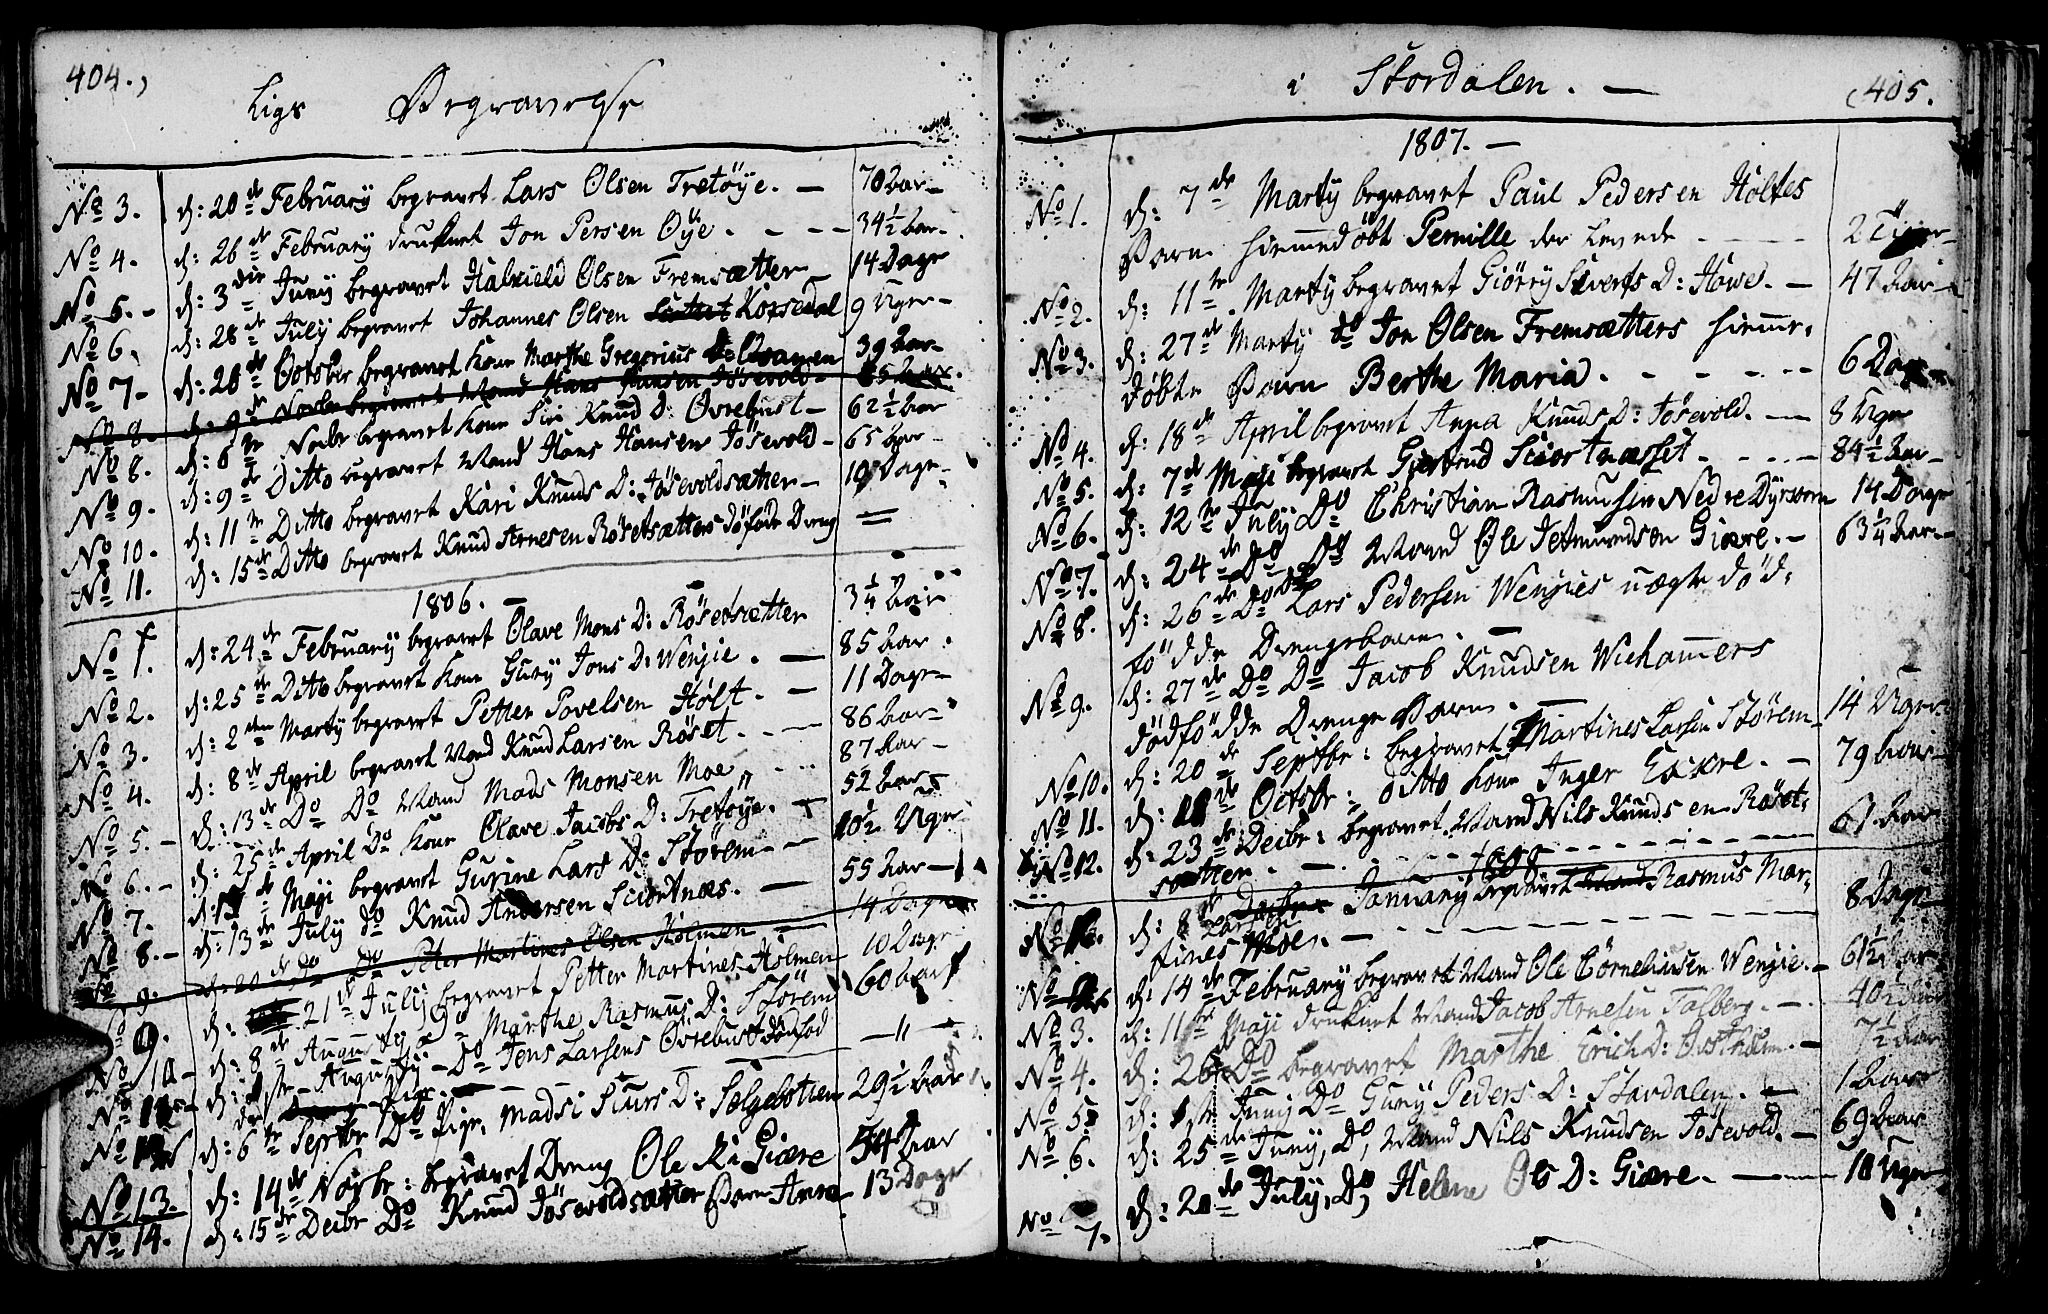 404.)
Ligs Begravelse
No 3. d: 20de February begravet Lars Olsen Tretøye. — 70 Aar —
No 4. d: 26de February druknet Jon Persen Øye. - - - 34½ Aar -
No 5. - d: 3die Juny begravet Halvield Olsen Fremsætter — 14 Dage
No 6. d: 28de July begravet Johannes Olsen Korsedal 9 Uger —
No 7 - d: 26de October begravet Kone Marthe Gregorius 39 Aar —
No 8. d: 9de Novbr begravet Mand Hans Hansen Jøsevold - 65 Aar.
No 8. d: 6te Novbr begravet Kone Siri Knud D: Øvrebust — 62½ Aar
No 9. d: 9de Ditto begravet Mand Hans Hansen Jøsevold — 65 Aar —
No 10. d: 11te Ditto begravet Kari Knuds D: Jøsevoldsætter — 10 Dage -
No 11. d: 15de Ditto begravet Knud Arnesen Røsetsætters døføde Dreng =
1806. —
No 1. d: 24de February begravet Olave Mons D: Røsetsætter 3¼ Aar
No 2. d: 25de Ditto begravet Kone Gury Jons D: Wenjie. — 85 Aar.
No 3. d: 2den Marty begravet Petter Povelsen Holt. — 11 Dage —
No 4. d: 8de April begravet Mand Knud Larsen Røset. - - 86 Aar -
No 5. - d: 13de Do Do Mand Mads Monsen Moe - - 87 Aar —
No 6. - d: 25de April Do Kone Olave Jacobs D: Tretøye. — 52 Aar —
No 7. d: de Maji begravet Gurine Lars D: Størem — 10½ Uger
No 8. - d: 13de July do Knud Andersen Sciortnæs. — 55 Aar —
No 9. d: 20de Do Do Peter Martines Olsen Holmen — 14 Dage
No 9. d: 21de July begravet Petter Martines Holmen 10 Dage
No 10 - d: 8de Augusty Do Marthe Rasmus D: Størem 60 Aar
No 11. d: 1ste Augusty - Do Jens Larsens Øvrebust dødfød — " —
No 12 d: 6te Septbr Do Pige Madsi Siurs D: Sælgebotten 29½ Aar
No 13. d: 14de Novbr: begravet Dreng Ole Giære 54 Aar
No 14. d: 15de Decbr Do Knud Jøsevoldsætter Barn Anne 13 Dage
i Stordalen. —
405.
1807. —
No 1. d: 7de Marty begravet Paul Pedersen Holtes
Barn hiemedøbt Pernille der levede - - - - 2
No 2. d: 11te Marty begravet Giørry Siverts D: Howe. — 47 Aar —
No 3. d: 27de Marty do Jon Olsen Fremsætters hieme-
døbte Barn Berthe Maria. - - - - 6 Dage
No 4. d: 18de April begravet Anna Knuds D: Jøsevold. — 8 Uger
No 5. d: 7de Maji begravet Giertrud Sciortnæsset - - - 84½ Aar —
No 6. d: 12te July Do Christian Rasmussen Nedre Dyrkorn 14 Dage
No 7. d: 24de Do Do Mand Ole Jetmundsen Giære. — 63¼ Aar —
No 8. d: 26de Do Do Lars Pedersen Wenjies uægte død-
fødde Drengebarn. —
No 9. d: 27de Do Do Jacob Knudsen Wiehammers
dødfødde Drenge Barn. —
No 10. d: 20de Septbr: begravet Martines Larsen Størem — 14 Uger
No 11. d: 11de Octobr: ditto Kone Inger Eckre. — 79 Aar —
No 12. d: 23de Decbr: begravet Mand Nils Knudsen Røset-
sætter. — 61 Aar
1808
No 1. d: 8de January begravet Rasmus Mar-
tines Larsen Moe. — 8 Dage
No 2. d: 14de February begravet Mand Ole Corneliusen Wenjie. — 61½ Aar
No 3. d: 11te Maji druknet Mand Jacob Arnesen Talberg. — 40½ Aar
No 4. d: 26de Do begravet Marthe Erich D: Østholm. — 7½ Aar
No 5. d: 1te Juny Do Gury Peders D: Stavdalen. — 1 Aar
No 6. d: 25de Juny, Do, Mand Nils Knudsen Jøsevold. — 69 Aar
No 7. d: 20de July, Do, Helene Ols D: Giære. — 10 Uger